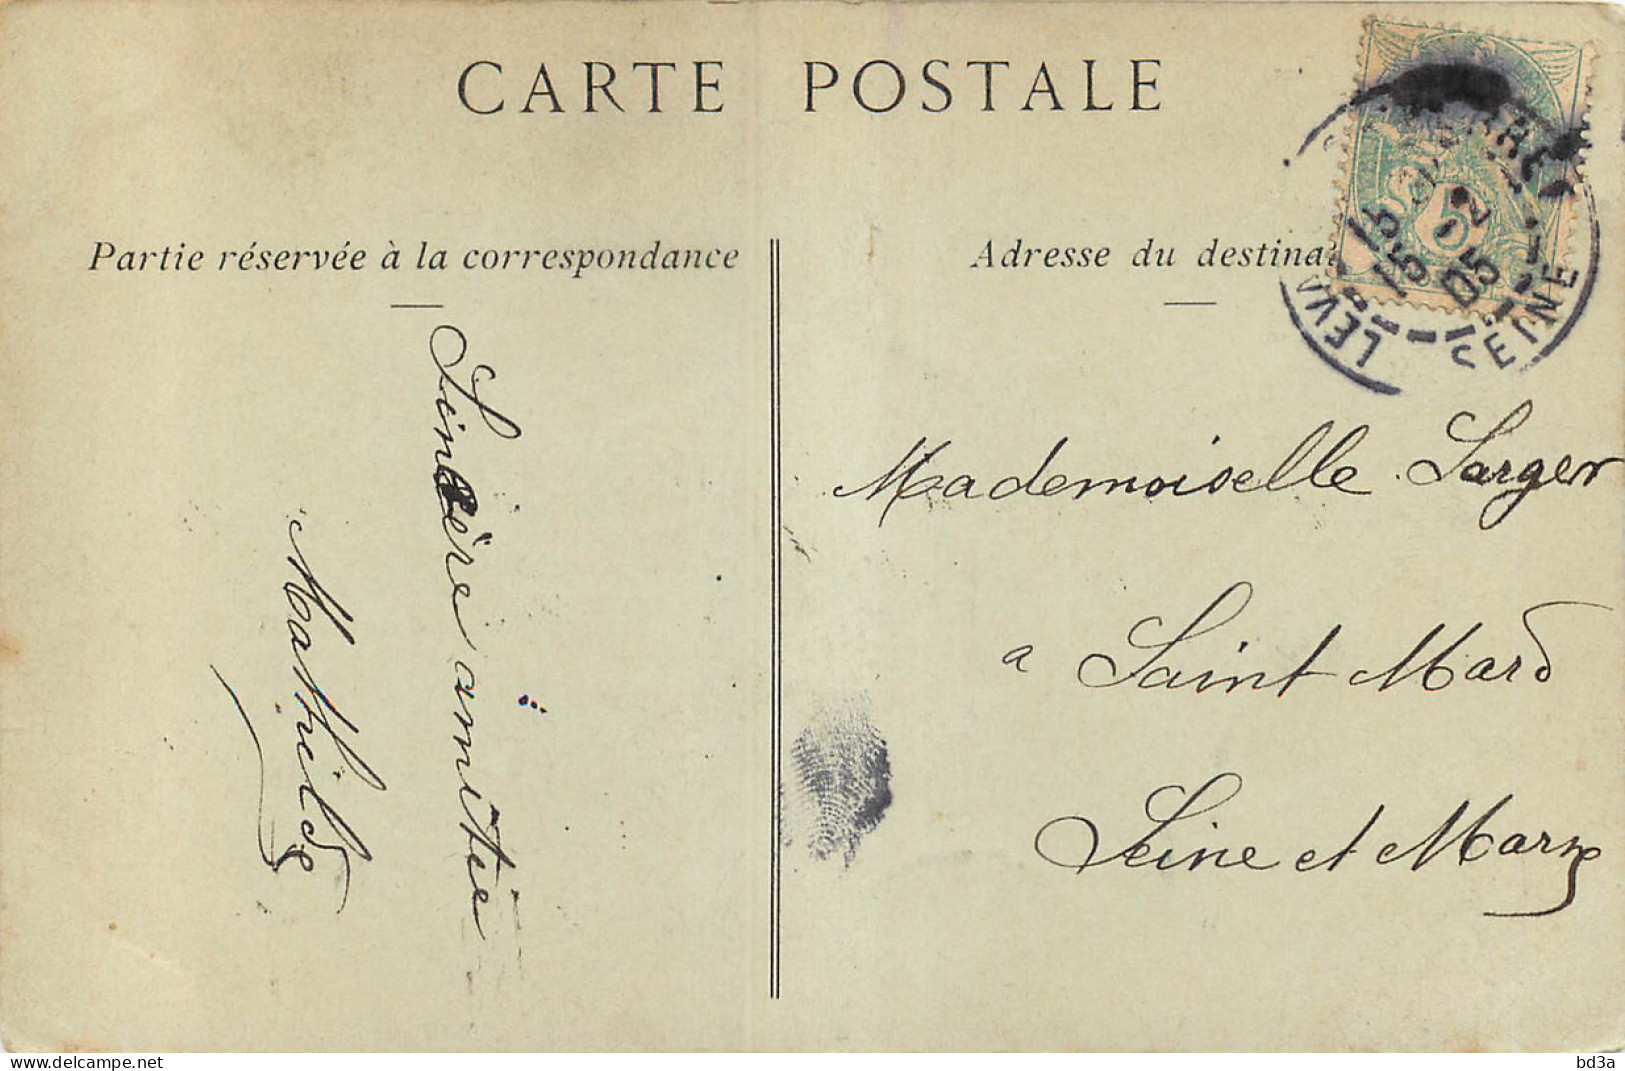 CARTE POSTALE
Partie réservée à la correspondance
Adresse du destina
Sincère amitié
Mathilde
Mademoiselle Larger
a Saint Mard
Seine et Marne
LEVA
SEINE
15
05
5
www.delcampe.net
bd3a